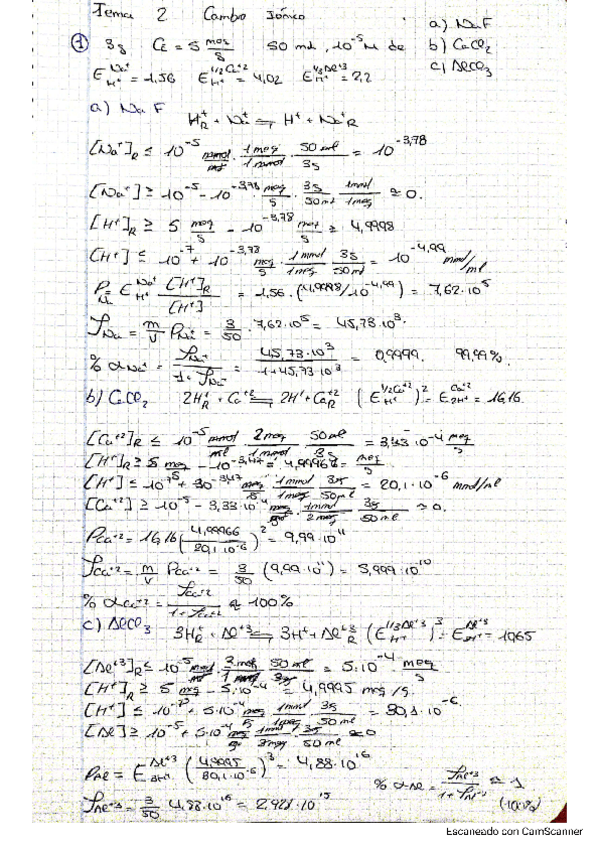 Tema 2 Cambio Iónico
a) NaF
① 3g CE = 5 meq/g 50 ml, 10^-5 M de b) CaCl2
c) AlCl3
E_H+^Na+ = 1,56 E_H+^1/2Ca+2 = 4,02 E_H+^1/3Al+3 = 2,2
a) NaF
H_R^+ + Na^+ ⇌ H^+ + Na^+_R
[Na+]_R ≤ 10^-5 mmol/ml · 1 meq/1 mmol · 50 ml/3g = 10^-3,78
[Na+] ≥ 10^-5 - 10^-3,78 meq/g · 3g/50 ml · 1 mmol/1 meq ≈ 0.
[H+]_R ≥ 5 meq/g - 10^-3,78 meq/g ≥ 4,9998
[H+] ≤ 10^-7 + 10^-3,78 meq/g · 1 mmol/1 meq · 3g/50 ml = 10^-4,99 mmol/ml
P_Na = E_H+^Na+ [H+]_R/[H+] = 1,56 · (4,9998/10^-4,99) = 7,62·10^5
f_Na = m/v P_Na+ = 3/50 · 7,62·10^5 = 45,73·10^3.
% α_Na+ = f_Na+/1+f_Na+ = 45,73·10^3/1+45,73·10^3 = 0,9999. 99,99%.
b) CaCl2 2H_R^+ + Ca^+2 ⇌ 2H^+ + Ca_R^+2 (E_H+^1/2Ca+2)^2 = E_2H+^Ca+2 = 16,16.
[Ca+2]_R ≤ 10^-5 mmol/ml · 2 meq/1 mmol · 50 ml/3g = 3,33·10^-4 meq/g
[H+]_R ≥ 5 meq/g - 10^-3,47 = 4,99966 = meq/g
[H+] ≤ 10^-7 + 10^-3,47 meq/g · 1 mmol/1 meq · 3g/50 ml = 20,1·10^-6 mmol/ml
[Ca+2] ≥ 10^-5 - 3,33·10^-4 meq/g · 1 mmol/2 meq · 3g/50 ml ≈ 0.
P_Ca+2 = 16,16 (4,99966/20,1·10^-6)^2 = 9,99·10^11
f_Ca+2 = m/v P_Ca+2 = 3/50 (9,99·10^11) = 5,999·10^10
% α_Ca+2 = f_Ca+2/1+f_Ca+2 ≈ 100%
c) AlCl3 3H_R^+ + Al^+3 ⇌ 3H^+ + Al_R^+3 (E_H+^1/3Al+3)^3 = E_3H+^Al+3 = 10,65
[Al+3]_R ≤ 10^-5 mmol/ml · 3 meq/1 mmol · 50 ml/3g = 5·10^-4 meq/g
[H+]_R ≥ 5 meq/g - 5·10^-4 = 4,9995 meq/g.
[H+] ≤ 10^-7 + 5·10^-4 meq/g · 1 mmol/1 meq · 3g/50 ml = 30,1·10^-6.
[Al] ≥ 10^-5 + 5·10^-4 meq/g · 1 mmol/3 meq · 3g/50 ml ≈ 0
P_Al = E_3H+^Al+3 (4,9995/30,1·10^-6)^3 = 4,88·10^16
% α_Al = f_Al+3/1+f_Al+3 ≈ 1
(100%)
f_Al+3 = 3/50 4,88·10^16 = 2,928·10^15
Escaneado con CamScanner